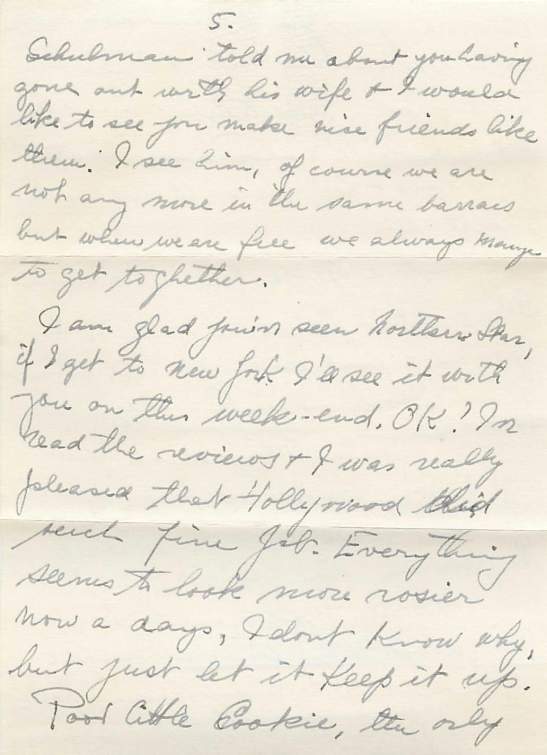 5.
Schulman told me about you having
gone out with his wife & I would
like to see you make nise friends like
them. I see him, of course we are
not any more in the same barracs
but when we are free we always mange
to get toghether.
I am glad you've seen Northern Star,
if I get to New York I'll see it with
you on this week-end. OK? I'v
read the reviews & I was really
pleased that Hollywood did
such fine job. Everything
seems to look more rosier
now a days, I dont know why,
but just let it keep it up.
Poor little Cookie, the only